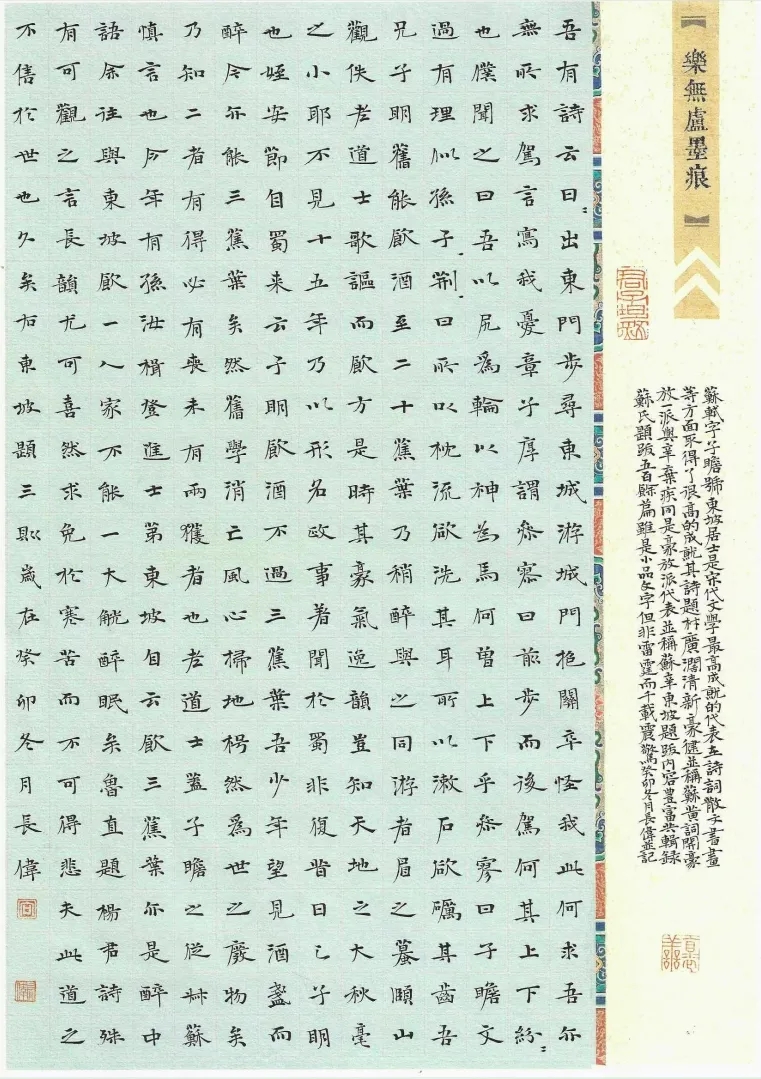 樂無廬墨痕
蘇軾字子瞻號東坡居士是宋代文學最高成就的代表在詩詞散文書畫
等方面取得了很高的成就其詩題材廣濶清新豪健並稱蘇黃詞開豪
放一派與辛棄疾同是豪放派代表並稱蘇辛東坡題跋内容豊富共輯錄
蘇氏題跋五百餘篇雖是小品文字但非雷霆而千載震驚癸卯冬月長偉並記
吾有詩云曰〻出東門步尋東城游城門抱關卒怪我此何求吾亦
無所求駕言寫我憂章子厚謂參寥曰前步而後駕何其上下紛〻
也僕聞之曰吾以尻爲輪以神為馬何曽上下乎參寥曰子瞻文
過有理似孫子荆〻曰所以枕流欲洗其耳所以漱石欲礪其齒吾
兄子明舊能飮酒至二十蕉葉乃稍醉與之同游者眉之蟇頤山
觀佚老道士歌謳而飮方是時其豪氣逸韻豈知天地之大秋毫
之小耶不見十五年乃以形名政事著聞於蜀非復昔日之子明
也姪安節自蜀来云子明飮酒不過三蕉葉吾少年望見酒盞而
醉今亦能三蕉葉矣然舊學消亡風心掃地枵然爲世之廢物矣
乃知二者有得必有喪未有兩獲者也老道士蓋子瞻之從叔蘇
慎言也今年有孫汝楫登進士第東坡自云飮三蕉葉亦是醉中
語余往與東坡飮一人家不能一大觥醉眠矣魯直題楊君詩殊
有可觀之言長韻尤可喜然求免於寒苦而不可得悲夫此道之
不售於世也久矣右東坡題三則歲在癸卯冬月長偉